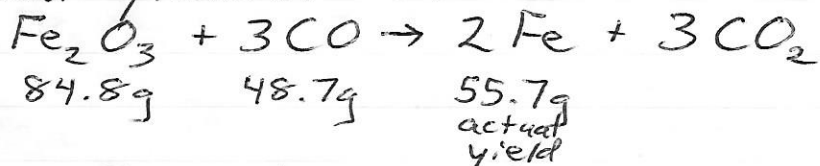 Fe₂O₃ + 3CO → 2Fe + 3CO₂
84.8g 48.7g 55.7g
actual
yield